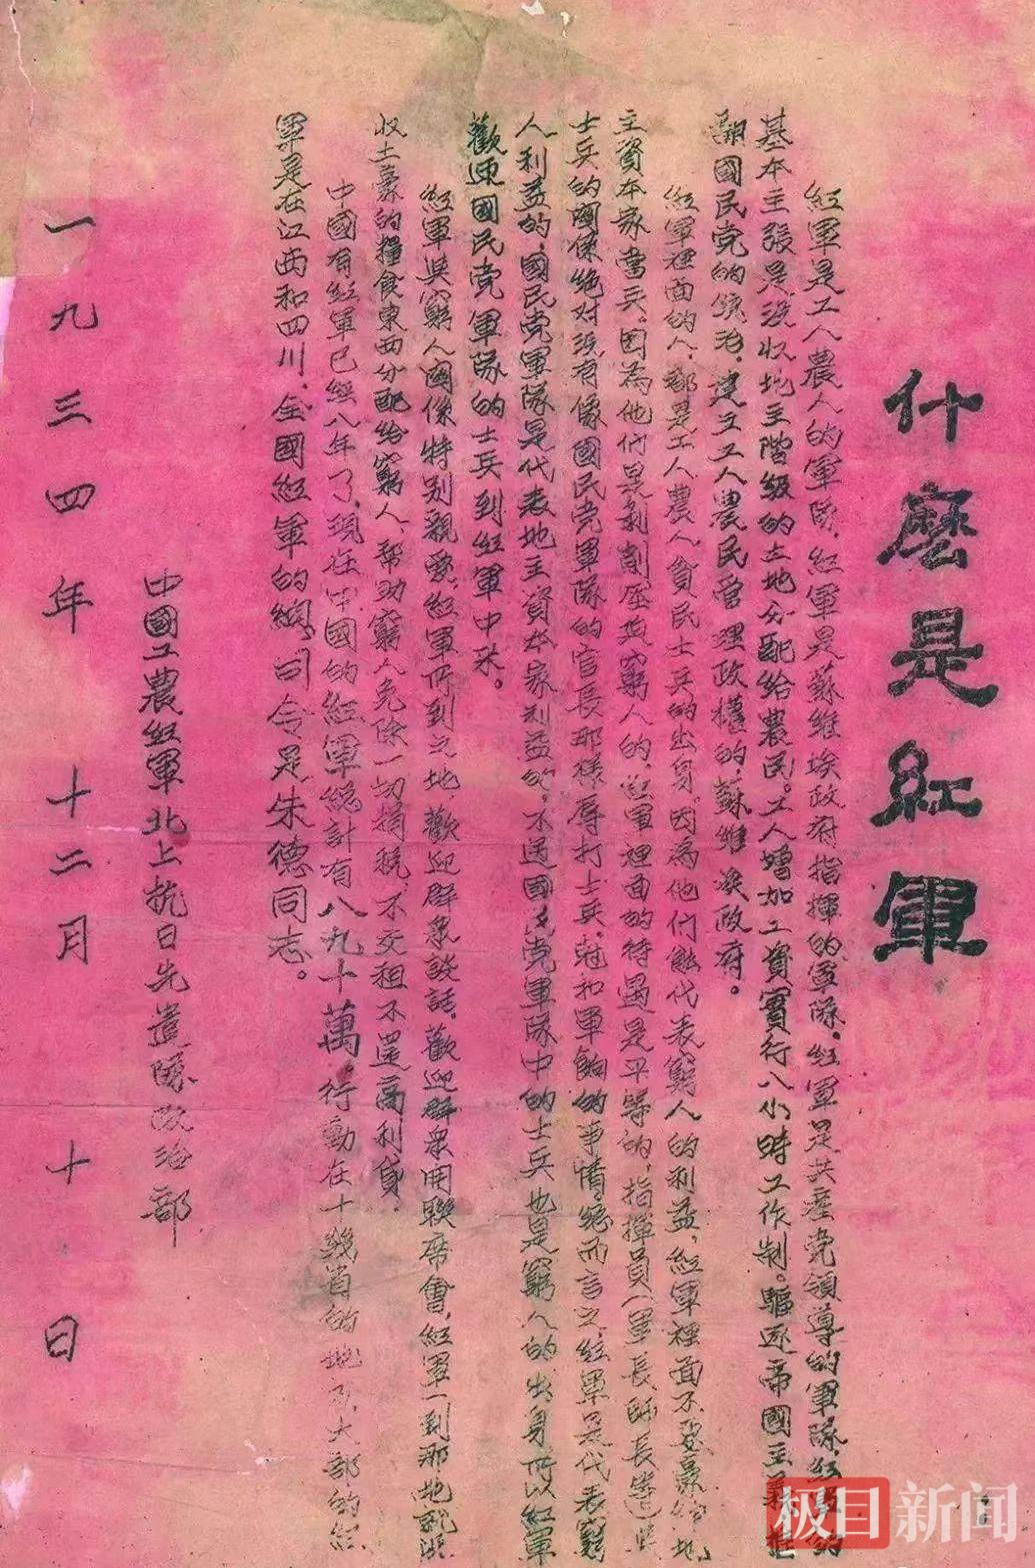 什麽是紅軍
紅軍是工人農人的軍隊，紅軍是蘇維埃政府指揮的軍隊，紅軍是共產党領導的軍隊，紅軍的
基本主張是没收地主階級的土地分配給農民。工人增加工資實行八小時工作制。驅逐帝國主義，推
翻國民党的統治，建立工人農民管理政權的蘇維埃政府。
紅軍裡面的人，都是工人農人貧民士兵的出身，因為他們能代表窮人的利益，紅軍裡面不要豪紳地
主資本家當兵，因為他們是剥削壓迫窮人的，紅軍裡面的待遇是平等的，指揮員（軍長師長等）與
士兵的關係絶對没有像國民党軍隊的官長那樣辱打士兵，尅扣軍餉的事情，總而言之，紅軍是代表窮
人利益的，國民党軍隊是代表地主資本家利益的，不過國民党軍隊中的士兵也是窮人的出身所以紅軍
歡迎國民党軍隊的士兵到紅軍中來。
紅軍與窮人關係特别親愛，紅軍所到之地，歡迎群衆談話，歡迎群衆開聯席會，紅軍一到那地就没
收土豪的糧食東西分配給窮人，帮助窮人免除一切捐稅，不交租不還高利貸，
中國有紅軍已經八年了，現在中國的紅軍總計有八九十萬，行動在十幾省的地方，大部的紅
軍是在江西和四川，全國紅軍的總司令是朱德同志。
中國工農紅軍北上抗日先遣隊政治部
一九三四年十二月十日
极目新闻